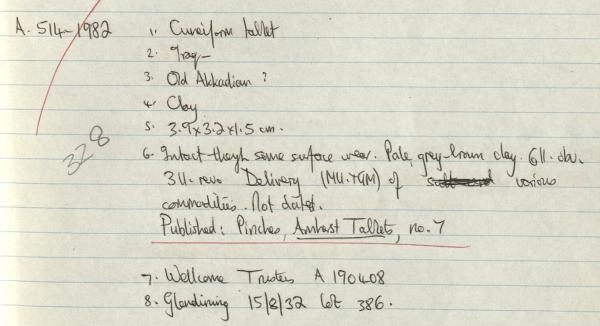 A. 514-1982 1. Cuneiform tablet
2. Iraq -
3. Old Akkadian ?
4. Clay
5. 3.9 x 3.2 x 1.5 cm.
328
6. Intact though some surface wear. Pale, grey-brown clay. 6 ll. obv.
3 ll. revo Delivery (MU.TUM) of various
commodities. Not dated.
Published: Pinches, Amherst Tablets, no. 7
7. Wellcome Trustees A 190408
8. Glendining 15/8/32 lot 386.